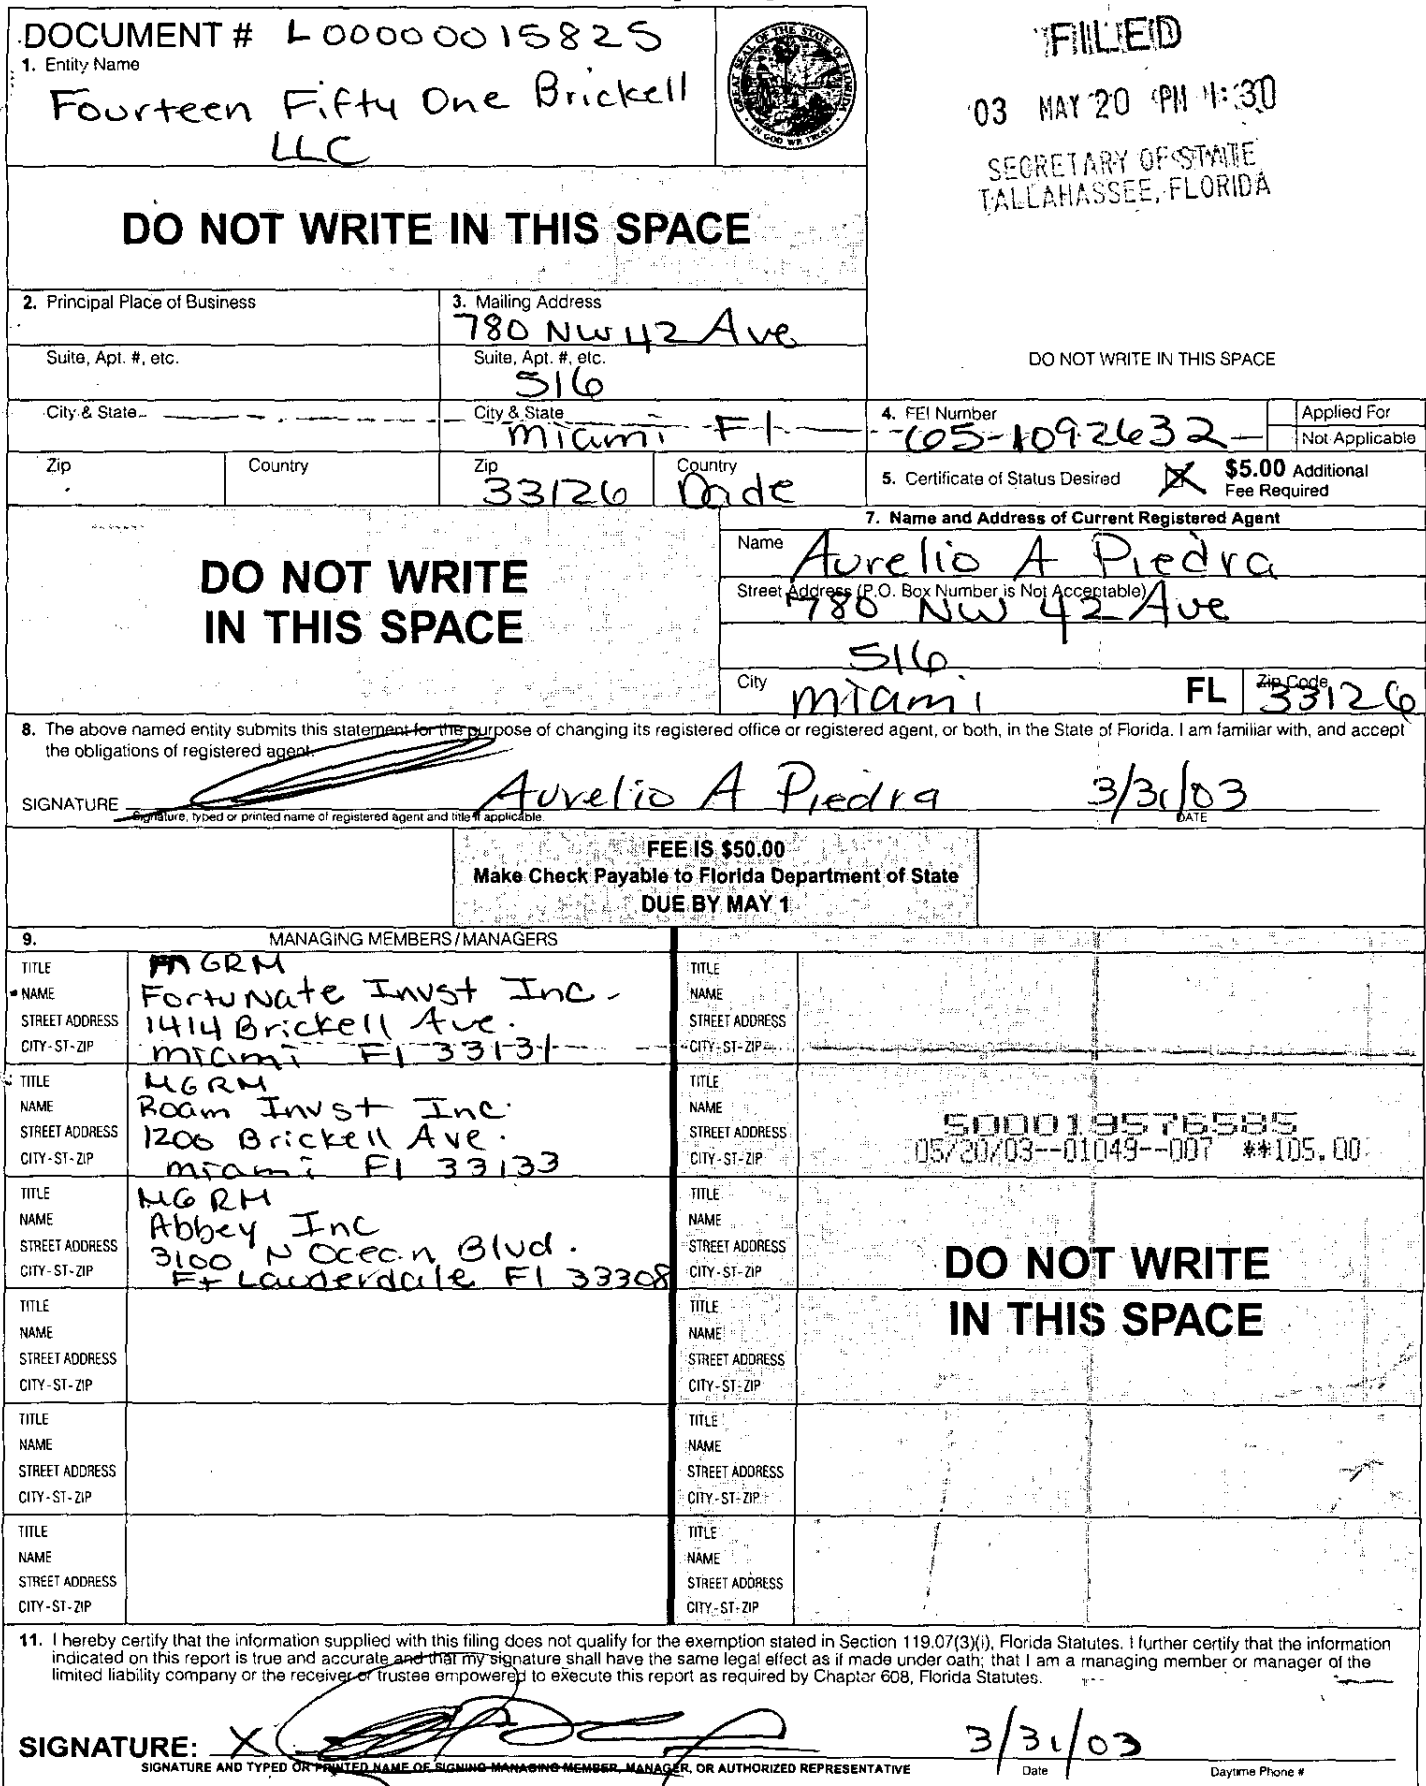 DOCUMENT # L00000015825
1. Entity Name
Fourteen Fifty One Brickell
LLC
GREAT SEAL OF THE STATE OF FLORIDA
IN GOD WE TRUST
FILED
03 MAY 20 PM 4:30
SECRETARY OF STATE
TALLAHASSEE, FLORIDA
DO NOT WRITE IN THIS SPACE
2. Principal Place of Business
3. Mailing Address
780 NW 42 Ave
Suite, Apt. #, etc.
Suite, Apt. #, etc.
516
DO NOT WRITE IN THIS SPACE
City & State
City & State
Miami Fl
4. FEI Number
65-1092632
Applied For
Not Applicable
Zip
Country
Zip
33126
Country
Dade
5. Certificate of Status Desired X $5.00 Additional
Fee Required
DO NOT WRITE
IN THIS SPACE
7. Name and Address of Current Registered Agent
Name Aurelio A Piedra
Street Address (P.O. Box Number is Not Acceptable)
780 NW 42 Ave
516
City Miami FL Zip Code 33126
8. The above named entity submits this statement for the purpose of changing its registered office or registered agent, or both, in the State of Florida. I am familiar with, and accept
the obligations of registered agent.
SIGNATURE Aurelio A Piedra 3/31/03
Signature, typed or printed name of registered agent and title if applicable. DATE
FEE IS $50.00
Make Check Payable to Florida Department of State
DUE BY MAY 1
9. MANAGING MEMBERS / MANAGERS
TITLE MGRM
NAME Fortunate Invst Inc.
STREET ADDRESS 1414 Brickell Ave.
CITY-ST-ZIP Miami Fl 33131
TITLE
NAME
STREET ADDRESS
CITY-ST-ZIP
TITLE MGRM
NAME Roam Invst Inc.
STREET ADDRESS 1200 Brickell Ave.
CITY-ST-ZIP Miami Fl 33133
TITLE
NAME
STREET ADDRESS
CITY-ST-ZIP
500019576585
05/20/03--01049--007 **105.00
TITLE MGRM
NAME Abbey Inc
STREET ADDRESS 3100 N Ocean Blvd.
CITY-ST-ZIP Ft Lauderdale Fl 33308
TITLE
NAME
STREET ADDRESS
CITY-ST-ZIP
DO NOT WRITE
IN THIS SPACE
TITLE
NAME
STREET ADDRESS
CITY-ST-ZIP
TITLE
NAME
STREET ADDRESS
CITY-ST-ZIP
TITLE
NAME
STREET ADDRESS
CITY-ST-ZIP
TITLE
NAME
STREET ADDRESS
CITY-ST-ZIP
TITLE
NAME
STREET ADDRESS
CITY-ST-ZIP
TITLE
NAME
STREET ADDRESS
CITY-ST-ZIP
11. I hereby certify that the information supplied with this filing does not qualify for the exemption stated in Section 119.07(3)(i), Florida Statutes. I further certify that the information
indicated on this report is true and accurate and that my signature shall have the same legal effect as if made under oath; that I am a managing member or manager of the
limited liability company or the receiver or trustee empowered to execute this report as required by Chapter 608, Florida Statutes.
SIGNATURE: X 3/31/03
SIGNATURE AND TYPED OR PRINTED NAME OF SIGNING MANAGING MEMBER, MANAGER, OR AUTHORIZED REPRESENTATIVE Date Daytime Phone #